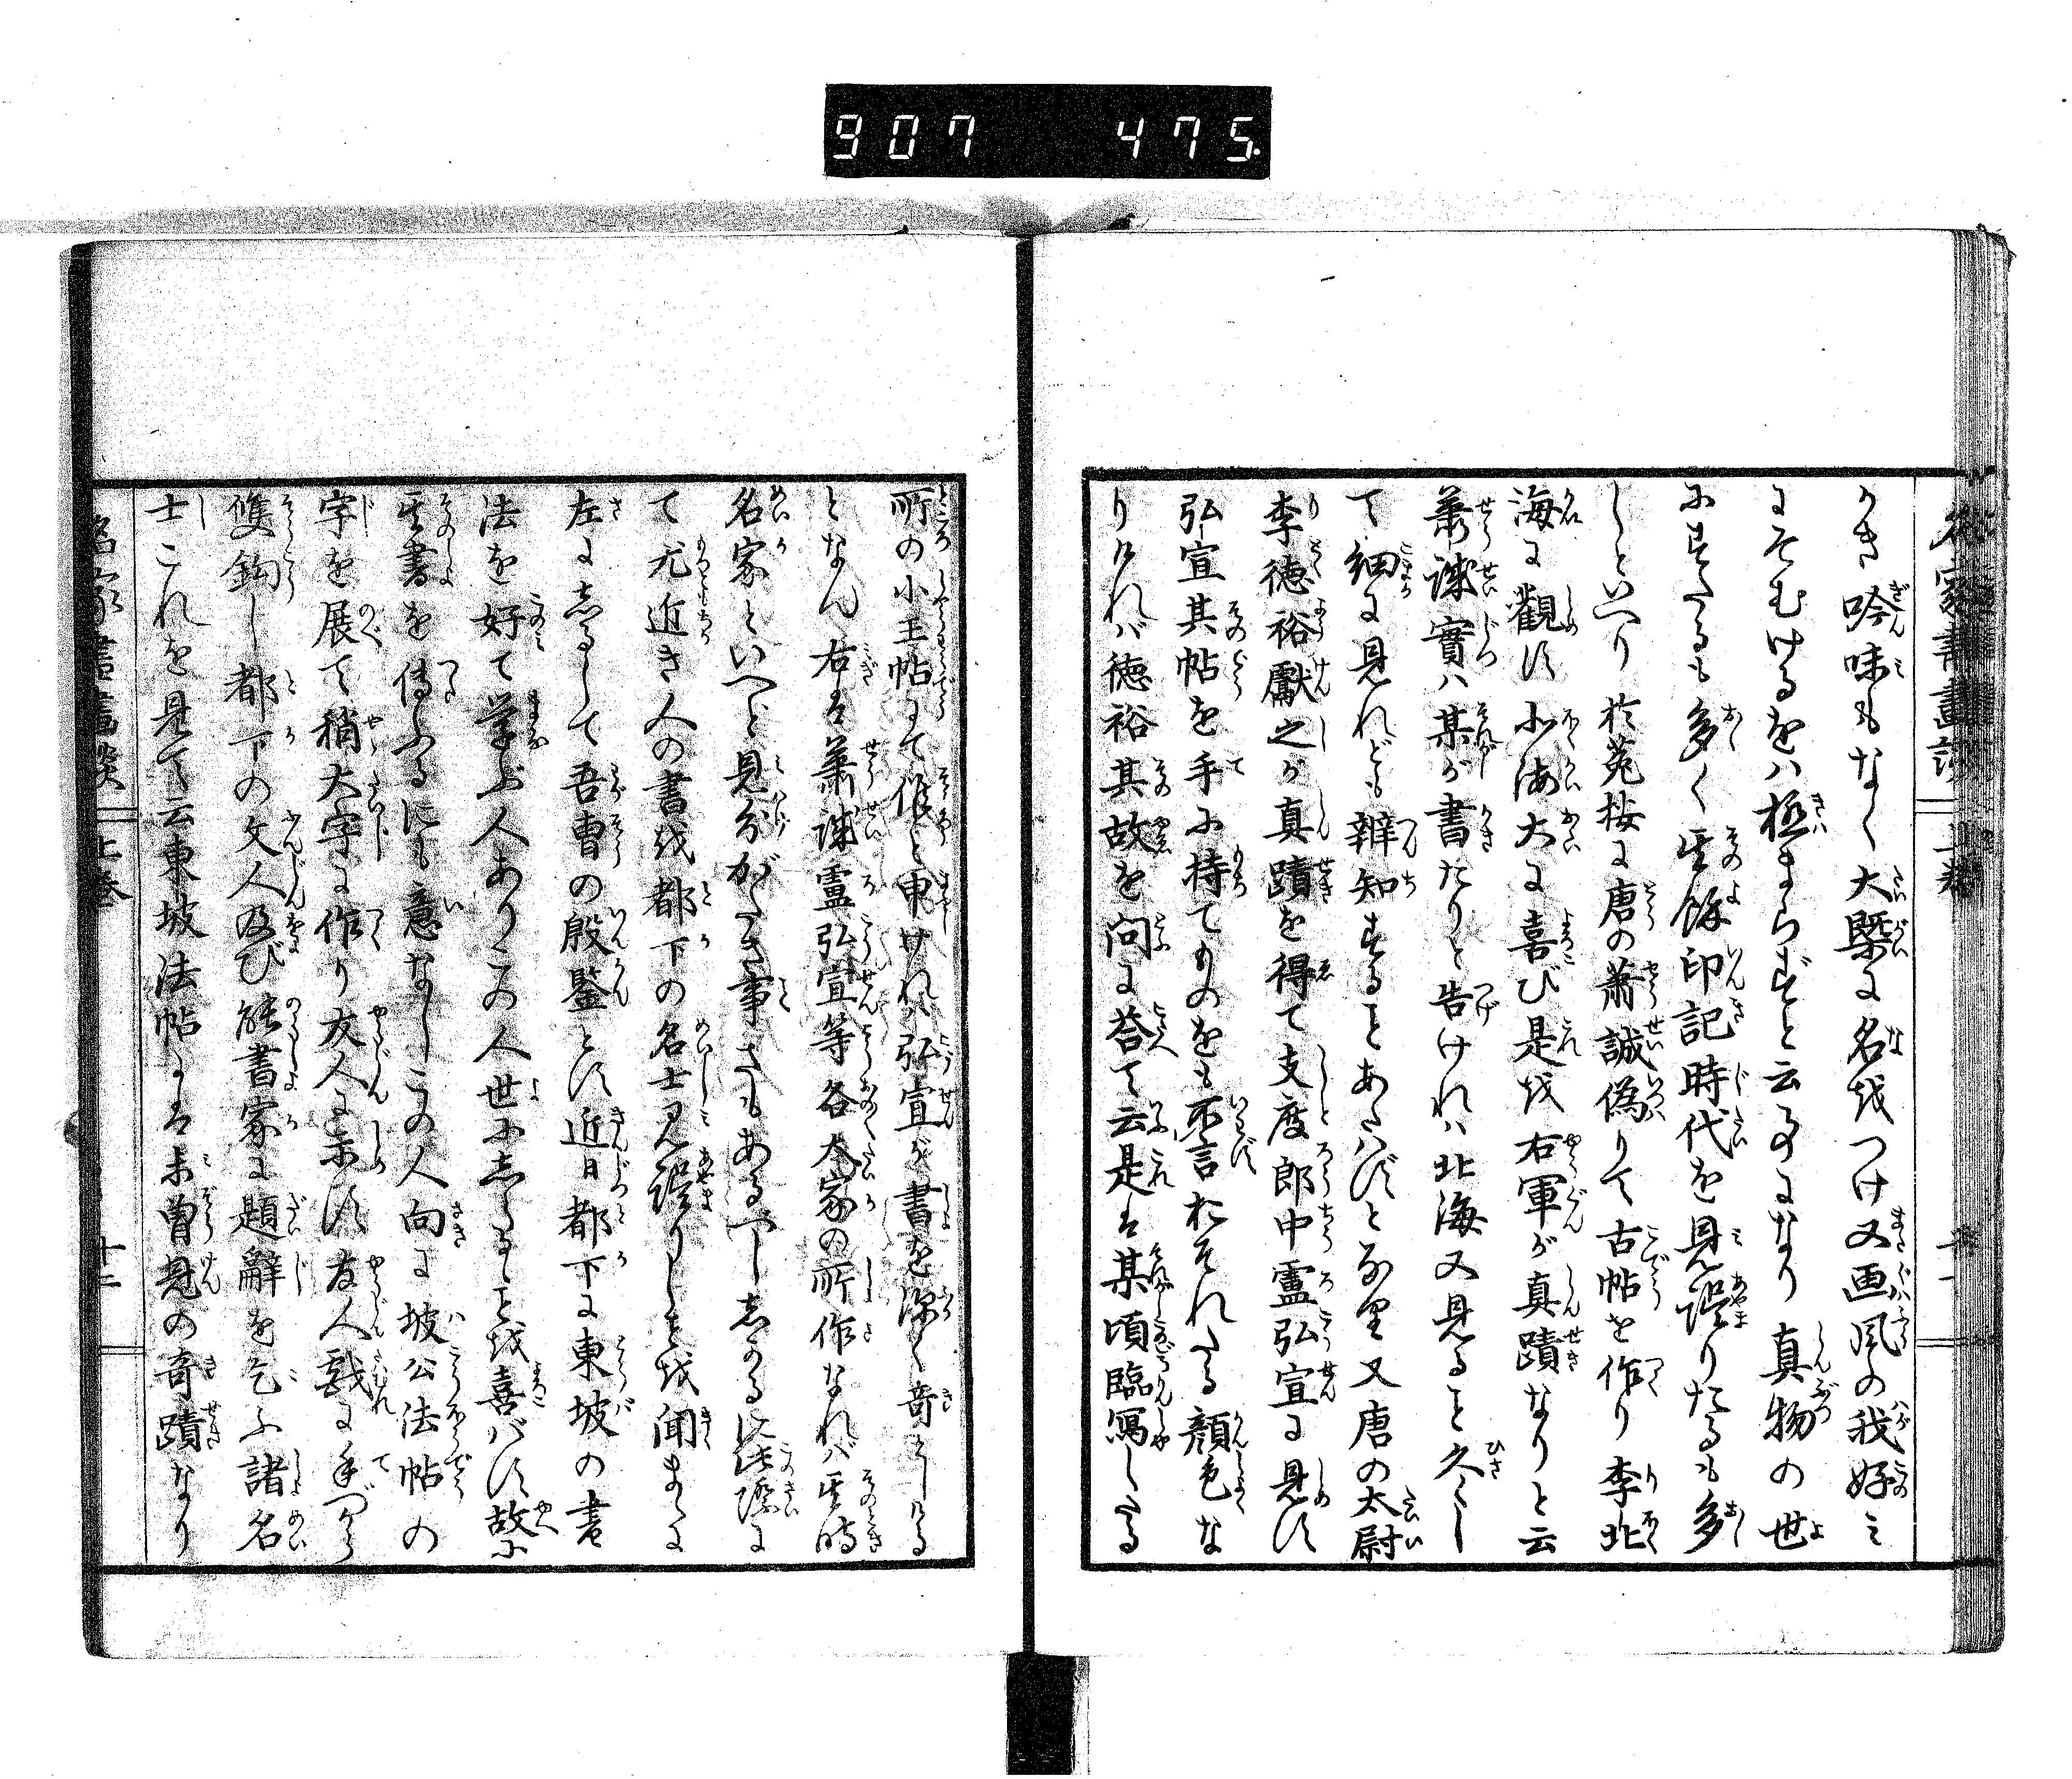 907 475
名家書畫談 上巻
うき吟味もなく大槩に名をつけ又画風の我好ミ
にそむけるをハ極まらずと云事になり真物の世
にすたるも多く其餘印記時代を見誤りたるも多
しといへり於菟按に唐の蕭誠偽りて古帖を作り李北
海に觀す北海大に喜び是を右軍が真蹟なりと云
蕭誠實ハ某が書たりと告けれハ北海又見ること久し
て細に見れども辨知することあたハずとなり又唐の太尉
李徳裕獻之が真蹟を得て支度郎中盧弘宣に見す
弘宣其帖を手に持てものをも不言おそれたる顔色な
りけれバ徳裕其故を問に答て云是は某頃臨寫したる
所の小王帖にて候と申せり弘宣が書を深く奇としける
となん右は蕭誠盧弘宣等各大家の所作なれバ其時
名家といへど見分がたき事さもあるべししかるに此際に
て尤近き人の書を都下の名士見誤りしを聞まゝに
左にしるして吾曹の殷鑒とす近日都下に東坡の書
法を好て学ぶ人ありこの人世にしらるゝを喜バず故に
其書を傳ふるにも意なしこの人向に坡公法帖の
字を展て稍大字に作り友人に示す友人戯に手づから
雙鈎し都下の文人及び能書家に題辭を乞ふ諸名
士これを見て云東坡法帖には未曽見の奇蹟なり
名家書畫談 上巻 十二